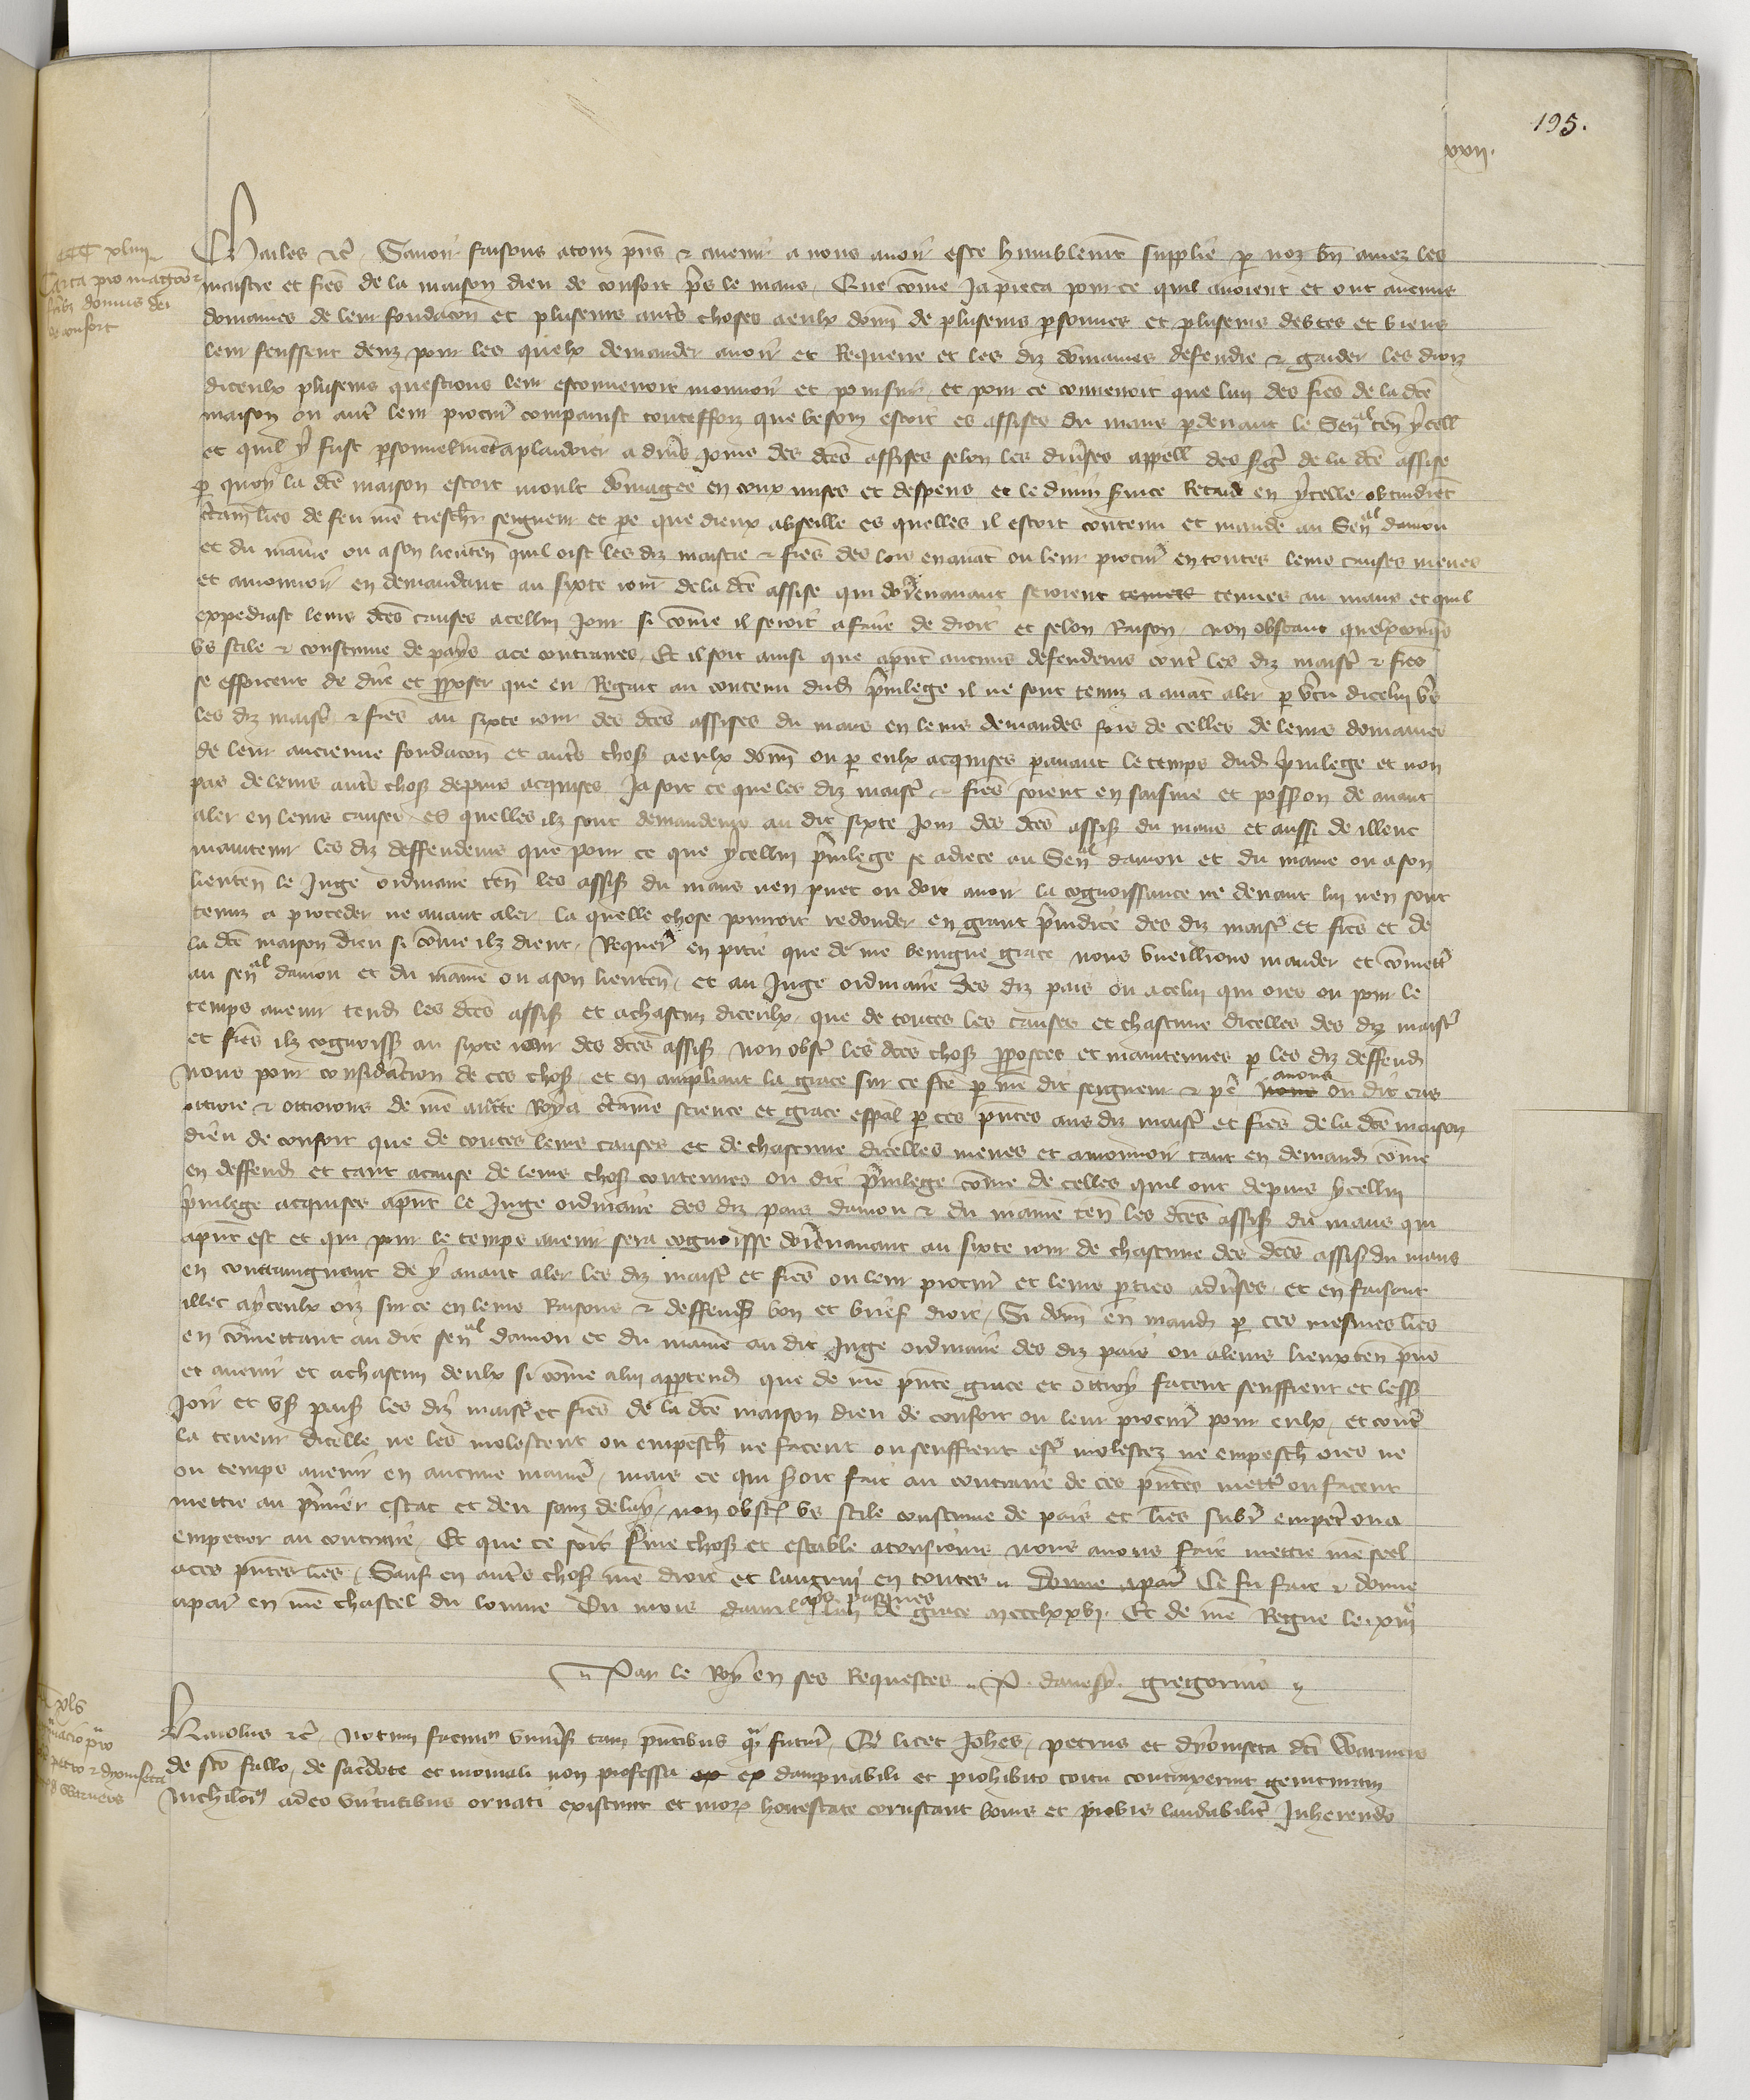 195.
xxii.
CCC xliiii
Carta pro magro et
frib domus dei
de confort
Charles etc. Savoir faisons a touz pns et avenir a nous avoir este humblemt supplie p noz bn amez les
maistre et fres de la maison dieu de confort pres le mans, Que come ja pieca pour ce quil avoient et ont aucuns
domaines de leur fondacon et pluseurs autrs choses a eulx donn de pluseurs psonnes et pluseurs debtes et biens
leur feussent deuz pour les quelx demander avoir et Requerre et les diz domaines defendre et garder les droiz
diceulx pluseurs questions leur esconvenoit mouvoir et poursuir et pour ce convenoit que lun des fres de la dce
maison ou autr leur procur comparust touteffoiz que besoin estoit es assises du mans pdevant le Senal ten ycell
et quil y fust psonnelmet a plaidoier a divs jours des dces assises selon les divses appell des sgr de la dce assise
p quoy la dce maison estoit moult domagee en coux mises et despens et le divin svice Retarde en ycelle obtindret
ctaines lres de feu nre treschr seigneur et pe que dieux absoille es quelles il estoit contenu et mande au Senal danjou
et du maine ou a son lieuten quil oist les diz maistre et fres des lors enavat ou leur procur en toutes leurs causes meues
et a mouvoir en demandant au sixte jour de la dce assise qui dorenavant seroient tenues tenues au mans et quil
expediast leurs dces causes a cellui jour si come il seroit a faire de droit et selon Raison, non obstant quelxconqs
us stile et coustume de pays a ce contraires, Et il soit ainsi que apnt aucuns defendeurs contr les diz maistr et fres
se efforcent de dire et pposer que en Regart au contenu dud pvilege il ne sont tenuz a avat aler p vtu dicelui vs
les diz maistr et fres au sixte jour des dces assises du mans en leurs demandes fors de celles de leurs domaines
de leur ancienne fondacon et autrs chos a eulx donn ou p eulx acquises pavant le temps dud pvilege et non
pas de leurs autrs chos depuis acquises Ja soit ce que les diz maistr et fres soient en saisine et possion de avant
aler en leurs causes es quelles ilz sont demandeurs au dit sixte jour des dces assis du mans et aussi de illeuc
maintenir les diz deffendeurs que pour ce que ycellui pvilege se adrece au Senal danjou et du maine ou a son
lieuten le Juge ordinaire ten les assis du mans nen puet ou doit avoir la cognoissance ne devant lui nen sont
tenuz a proceder ne avant aler la quelle chose pourroit redonder en grant pjudice des diz maistr et fres et de
la dce maison dieu si come ilz dient, Requer en pitie que de nre benigne grace nous vueillions mander et comettr
au senal danjou et du maine ou a son lieuten, et au Juge ordinaire des diz pais ou a celui qui ores ou pour le
temps avenir tend les dces assis et a chascun diceulx, que de toutes les causes et chascune dicelles des diz maistr
et fres ilz cognoiss au sixte jour des dces assis non obst les dces chos pposees et maintenues p les diz deffend
Nous pour consideracion de ces chos, et en ampliant la grace sur ce fce p nre dit seigneur et pe nous avons ou dit cas
ottroie et ottroions de nre auctte Roya ctaine science et grace espal p ces pntes aus diz maistr et fres de la dce maison
dieu de confort que de toutes leurs causes et de chascune dicelles meues et a mouvoir tant en demand come
en deffend et tant a cause de leurs chos contenues ou dit pvilege come de celles quil ont depuis ycellui
pvilege acquises apnt le Juge ordinaire des diz pais danjou et du maine ten les dces assis du mans qui
apnt est et qui pour le temps avenir sera cognoisse dorenavant au sixte jour de chascune des dces assis du mans
en contraingnant de y avant aler les diz maistr et fres ou leur procur et leurs pties advses, et en faisant
illec a yceulx oiz sur ce en leurs Raisons et deffens bon et brief droit, Si donn en mand p ces mesmes lres
en comettant au dit senal danjou et du maine au dit Juge ordinaire des diz pais ou a leurs lieuxten pns
et avenir et a chascun deulx si come a lui apptend que de nre pnte grace et ottroy facent seuffrent et less
joir et us paisi les diz maistr et fres de la dce maison dieu de confort ou leur procur pour eulx, et contr
la teneur dicelle ne les molestent ou empesch ne facent ou seuffrent estr molestez ne empesch ores ne
ou temps avenir en aucune manier, mais ce qui seroit fait au contraire de ces pntes mettr ou facent
mettre au pmier estat et deu sanz delay, non obst us stile coustume de pais et lres subr empetr ou a
empetrer au contraire, Et que ce soit ferme chos et estable a tousjours nous avons fait mettre nre seel
a ces pntes lres, Sauf en autrs chos nre droit et lautrui en toutes. Donne a par Ce fu fait et donne
a par en nre chastel du louvre Ou mois davril aps pasques lan de grace mccclxxvj. Et de nre Regne le xiije
Par le Roy en ses Requestes. P. davesy. gregorius
Karolus etc. Notum facimus univs tam pntibus qm futur, Qd licet Johes, petrus et dyoniseta dci Warniers
de sco fallo, de sacdote et moniali non professa ex ex dampnabili et prohibito coitu contraxerint genituram
Nichilomis adeo virtutibus ornati existunt et mor honestate coruscant bonis et probis laudabilit Inherendo